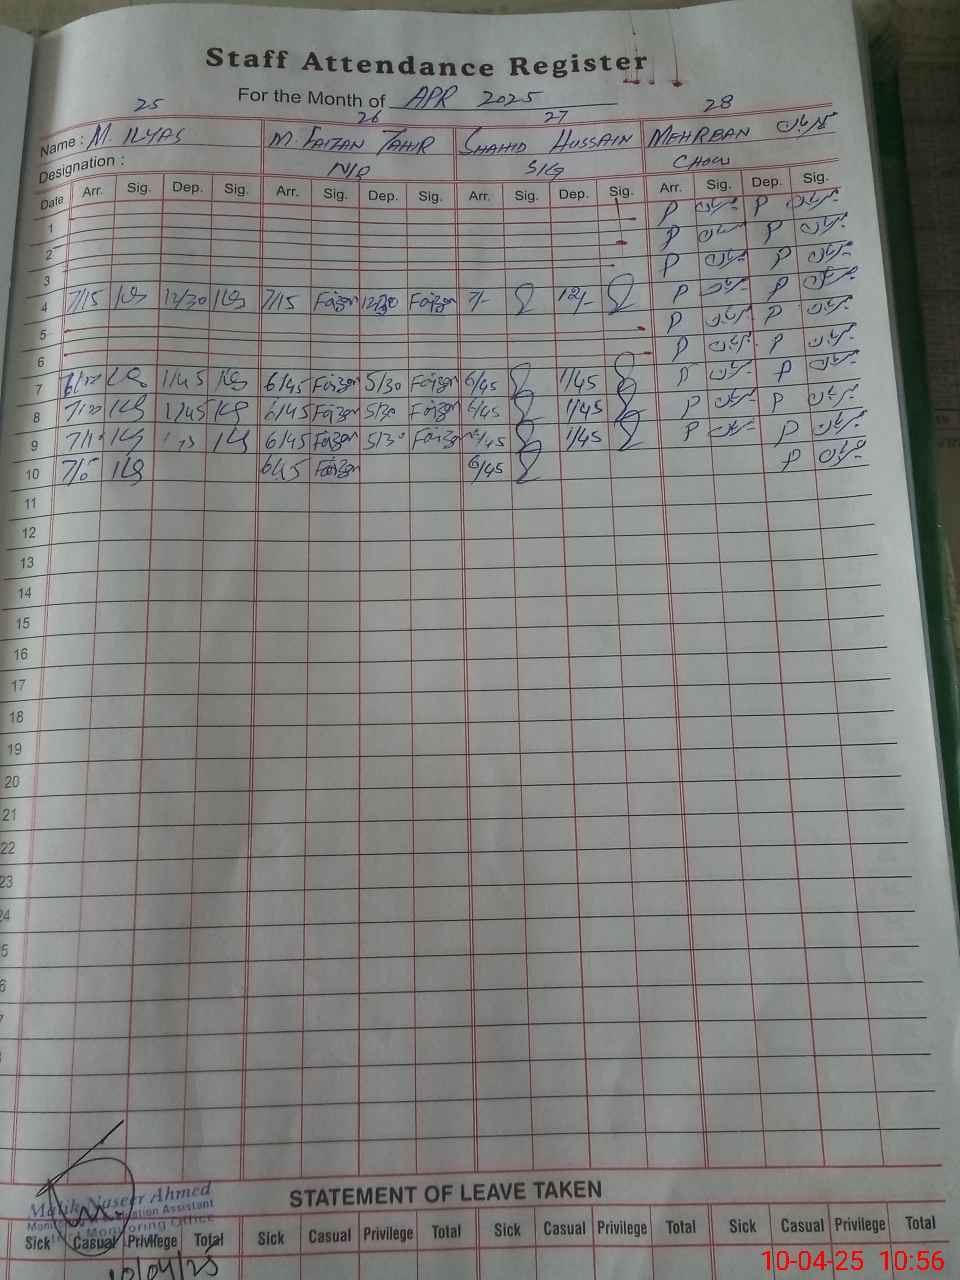 Staff Attendance Register
For the Month of APR 2025
25 26 27 28
Name : M. ILYAS M. FAIZAN TAHIR SHAHID HUSSAIN MEHRBAN مہربان
Designation : N/Q S/G CHOW
Date Arr. Sig. Dep. Sig. Arr. Sig. Dep. Sig. Arr. Sig. Dep. Sig. Arr. Sig. Dep. Sig.
1 P مہربان P مہربان
2 P مہربان P مہربان
3 P مہربان P مہربان
4 7/15 12/30 7/15 Faizan 12/30 Faizan 7/- 12/- P مہربان P مہربان
5 P مہربان P مہربان
6 P مہربان P مہربان
7 1/45 6/45 Faizan 5/30 Faizan 6/45 1/45 P مہربان P مہربان
8 1/45 6/45 Faizan 5/30 Faizan 6/45 1/45 P مہربان P مہربان
9 6/45 Faizan 5/30 Faizan 6/45 1/45 P مہربان P مہربان
10 6/45 Faizan 6/45 P مہربان
11
12
13
14
15
16
17
18
19
20
21
22
23
24
5
6
7
Malik Naseer Ahmed
Assistant
Monitoring Office
STATEMENT OF LEAVE TAKEN
Sick Casual Privilege Total Sick Casual Privilege Total Sick Casual Privilege Total Sick Casual Privilege Total
10/04/25
10-04-25 10:56